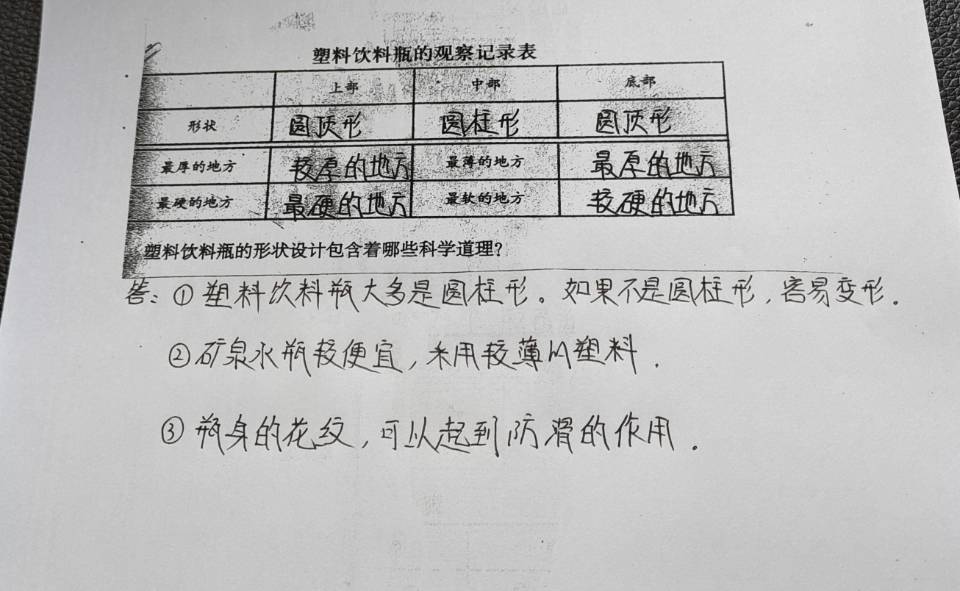 塑料饮料瓶的观察记录表
上部 中部 底部
形状 圆顶形 圆柱形 圆顶形
最厚的地方 较厚的地方 最薄的地方 最厚的地方
最硬的地方 最硬的地方 最软的地方 较硬的地方
塑料饮料瓶的形状设计包含着哪些科学道理?
答:①塑料饮料瓶大多是圆柱形。如果不是圆柱形,容易变形.
②矿泉水瓶较便宜,采用较薄的塑料.
③瓶身的花纹,可以起到防滑的作用.